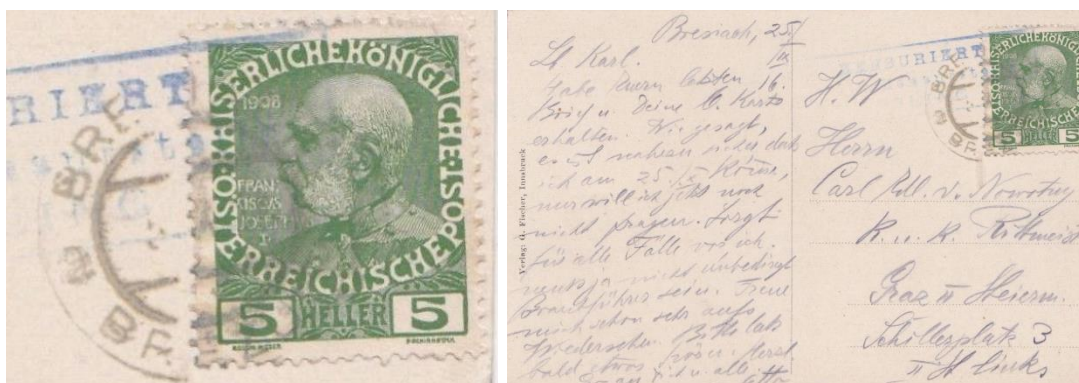 RIERT
BRE
BR
KAISERLICHE KÖNIGLICHE
1908
FRAN
CISCVS
JOSEPH
I
OSTERREICHISCHE POST
5 HELLER 5
Breniach, 25/
III
Lb Karl.
Habe Euern letzten 16.
Brief u. Deine Karte
erhalten. Wie gesagt,
es ist nahezu sicher daß
ich am 25. komme,
nur will ich jetzt noch
nicht fragen. Sorgt
für alle Fälle vor ich
muß ja nicht unbedingt
Brautführer sein. Freue
mich schon sehr aufs
Wiedersehen. Bitte laß
bald etwas hören. Herzl
alle
Otto
Verlag: G. Fischer, Innsbruck
ZENSURIERT
BRE
BR
KAISERLICHE KÖNIGLICHE
OSTERREICHISCHE POST
5 HELLER 5
H. W
Herrn
Carl Edl. v. Nowotny
K. u. K. Rittmeist
Graz II Steierm.
Schillerplatz 3
II St links